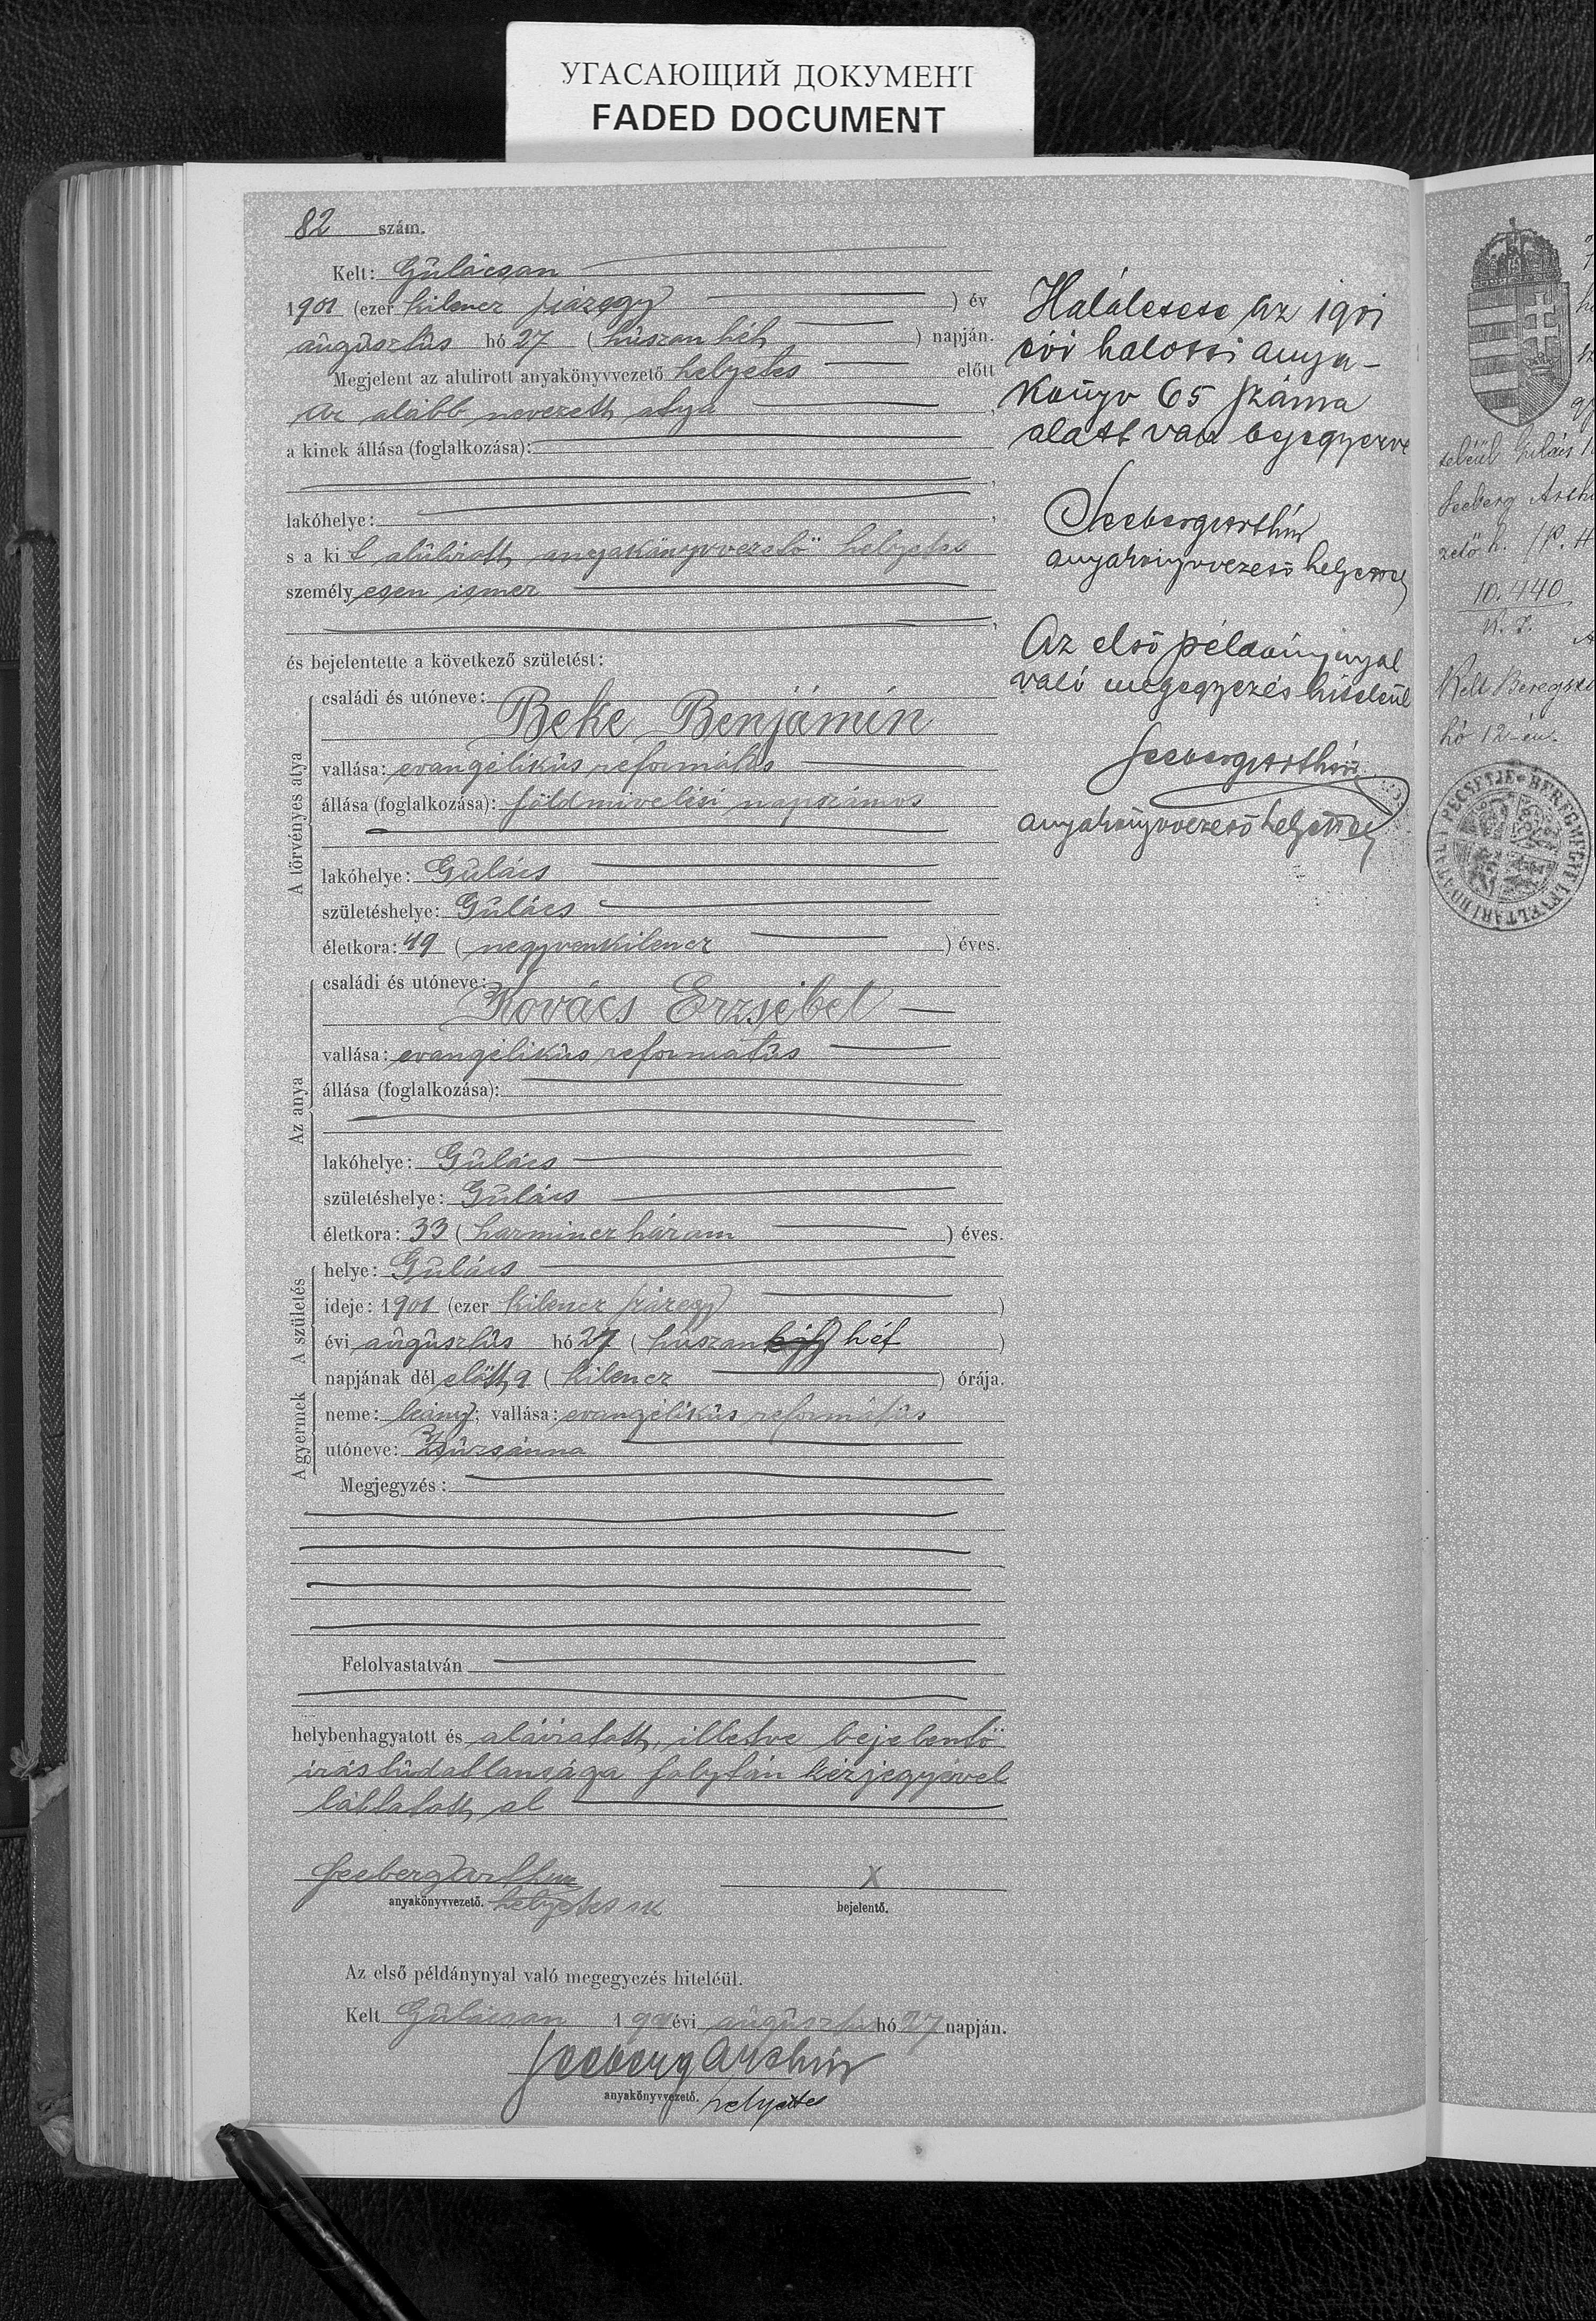 УГАСАЮЩИЙ ДОКУМЕНТ
FADED DOCUMENT
82 szám.
Kelt: Gulácson
1901 (ezer kilencz százegy) év
augusztus hó 27 (húszon hét) napján.
Megjelent az alulirott anyakönyvvezető helyetes előtt
az alább nevezett atya,
a kinek állása (foglalkozása):
lakóhelye:
s a kit alulirott anyakönyvvezető helyetes
személyesen ismer
és bejelentette a következő születést:
A törvényes atya
családi és utóneve:
Beke Benjámin
vallása: evangélikus református
állása (foglalkozása): földmivelési napszámos
lakóhelye: Gulács
születéshelye: Gulács
életkora: 49 (negyvenkilencz) éves.
Az anya
családi és utóneve:
Kovács Erzsébet
vallása: evangélikus református
állása (foglalkozása):
lakóhelye: Gulács
születéshelye: Gulács
életkora: 33 (harmincz három) éves.
A születés
helye: Gulács
ideje: 1901 (ezer kilencz százegy)
évi augusztus hó 27 (húszon hét)
napjának dél előtt 9 (kilencz) órája.
A gyermek
neme: leány; vallása: evangélikus református
utóneve: Zsuzsánna
Megjegyzés:
Felolvastatván
helybenhagyatott és aláiratott, illetve bejelentő
irástudatlansága folytán kézjegyével
láttatott el
Seeberg Arthur X
anyakönyvvezető. helyetes sk bejelentő.
Az első példánynyal való megegyezés hiteléül.
Kelt Gulácson 1901 évi augusztus hó 27 napján.
Seeberg Arthur
anyakönyvvezető. helyettes
Halálesete az 1901
évi halotti anya-
könyv 65 száma
alatt van bejegyezve
Seeberg Arthur
anyakönyvvezető helyettes
Az első példánynyal
való megegyezés hiteléül
Seeberg Arthur
anyakönyvvezető helyettes
teléül Gulács
Seeberg Arth
zető h. (P. H
10.440
Kelt Beregsz
hó 12-én.
PECSÉTJE * BEREGMEGYE LEVÉLTÁRI HIVATALI